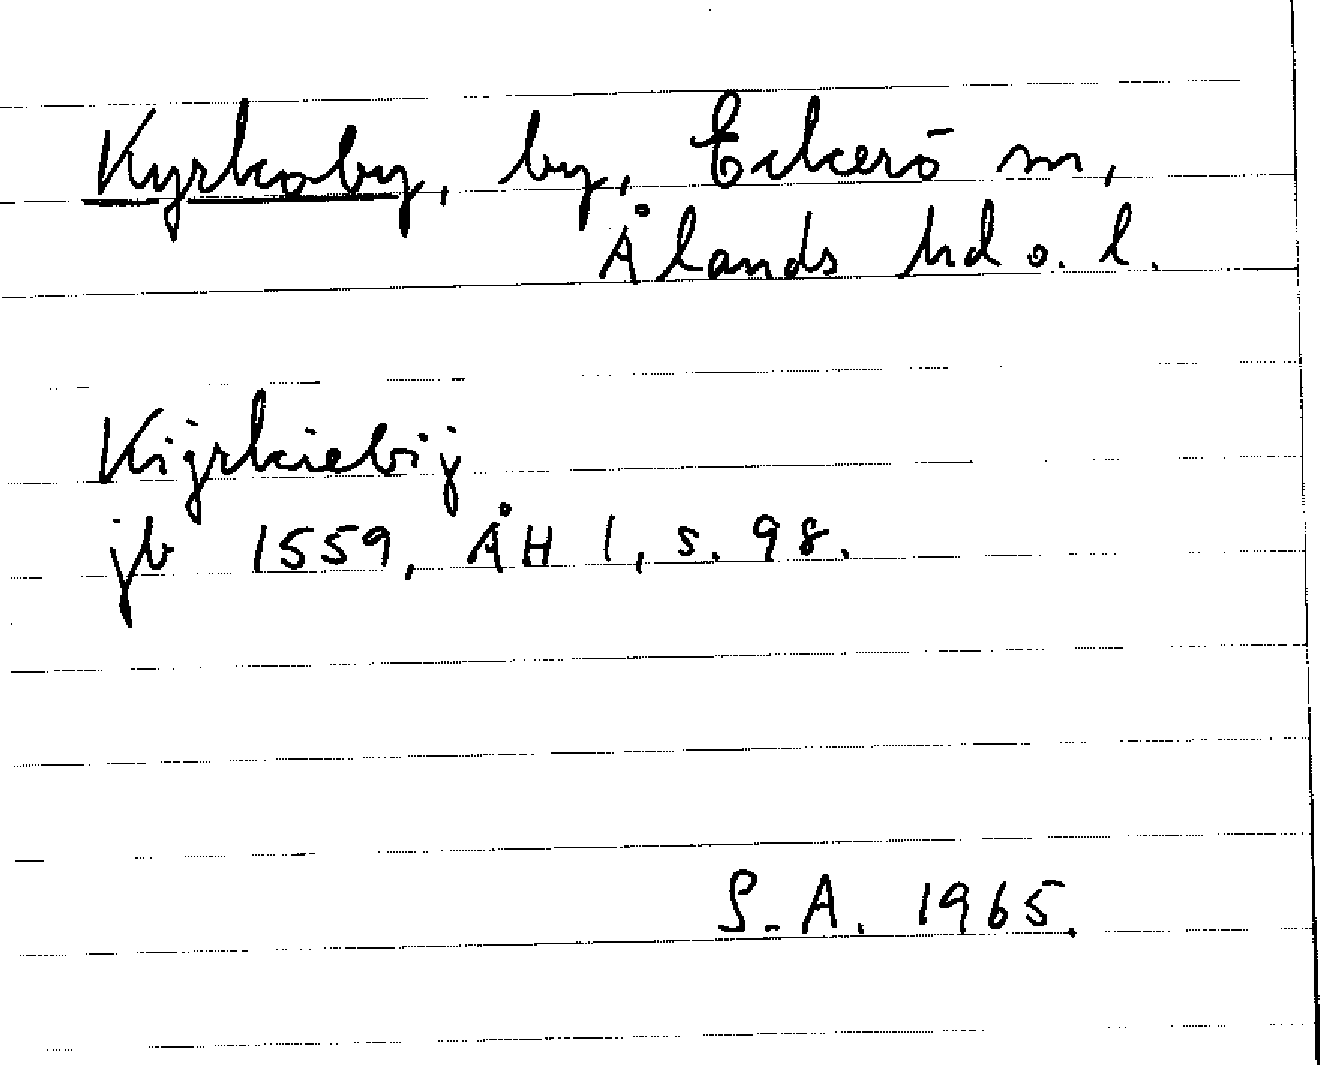 Kyrkoby, by, Eckerö sn,
Ålands hd o. l.
Kijrkiebij
jb 1559, ÅH 1, s. 98.
S.A. 1965.